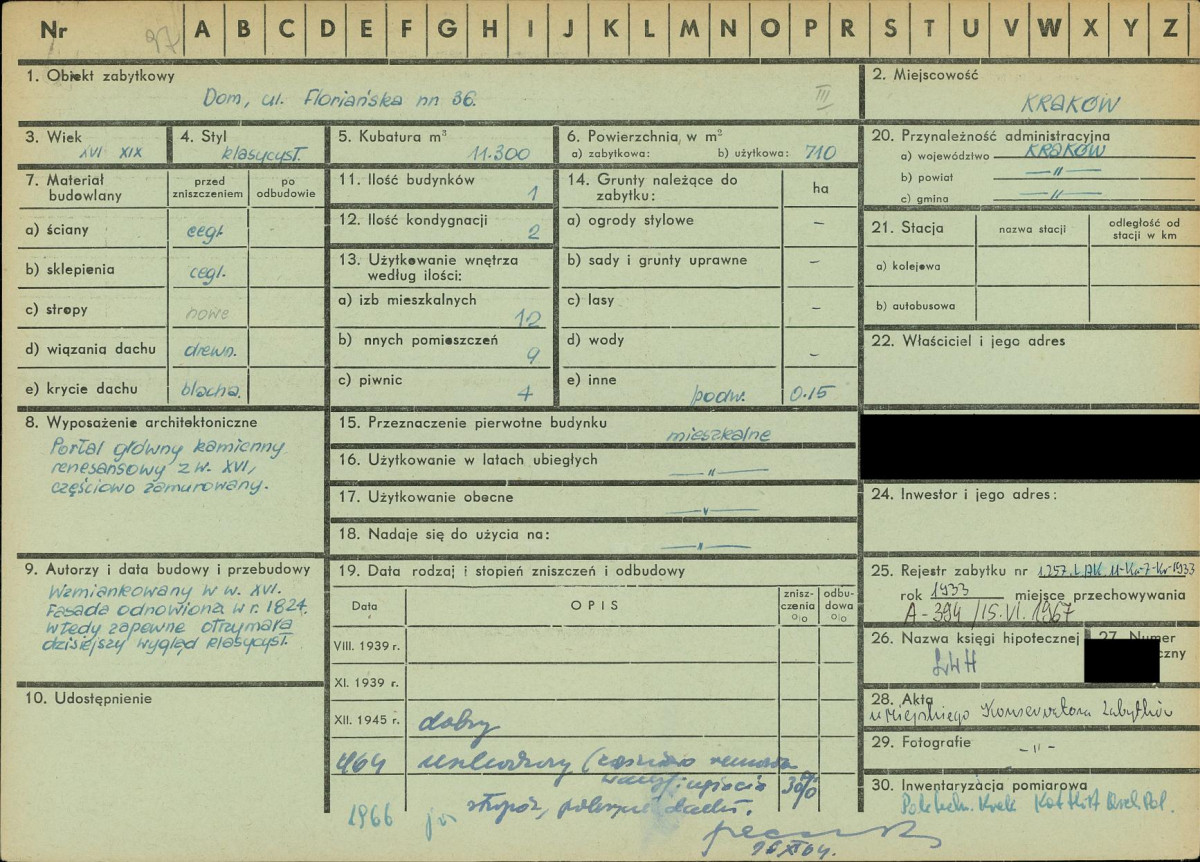 Nr 97 A B C D E F G H I J K L M N O P R S T U V W X Y Z
1. Obiekt zabytkowy
Dom, ul. Floriańska nn 36.
III
2. Miejscowość
KRAKÓW
3. Wiek
XVI XIX
4. Styl
klasycyst.
5. Kubatura m³
11.300
6. Powierzchnia w m²
a) zabytkowa: b) użytkowa: 710
20. Przynależność administracyjna
a) województwo KRAKÓW
b) powiat —"—
c) gmina —"—
7. Materiał budowlany
przed zniszczeniem
po odbudowie
a) ściany cegl.
b) sklepienia cegl.
c) stropy nowe
d) wiązania dachu drewn.
e) krycie dachu blacha.
11. Ilość budynków
1
12. Ilość kondygnacji
2
13. Użytkowanie wnętrza
według ilości:
a) izb mieszkalnych
12
b) nnych pomieszczeń
9
c) piwnic
4
14. Grunty należące do
zabytku:
ha
a) ogrody stylowe –
b) sady i grunty uprawne –
c) lasy –
d) wody –
e) inne podw. 0.15
21. Stacja
nazwa stacji
odległość od
stacji w km
a) kolejowa
b) autobusowa
22. Właściciel i jego adres
8. Wyposażenie architektoniczne
Portal główny kamienny
renesansowy z w. XVI,
częściowo zamurowany.
15. Przeznaczenie pierwotne budynku
mieszkalne
16. Użytkowanie w latach ubiegłych
—"—
17. Użytkowanie obecne
—"—
18. Nadaje się do użycia na:
—"—
24. Inwestor i jego adres:
9. Autorzy i data budowy i przebudowy
Wzmiankowany w w. XVI.
Fasada odnowiona w r. 1824.
wtedy zapewne otrzymała
dzisiejszy wygląd klasycyst.
10. Udostępnienie
19. Data rodzaj i stopień zniszczeń i odbudowy
Data
OPIS
znisz-
czenia
%
odbu-
dowa
%
VIII. 1939 r.
XI. 1939 r.
XII. 1945 r. dobry
30%
stropów,
1966
26 XI 64.
25. Rejestr zabytku nr
rok 1933 miejsce przechowywania
A-394/15.VI.1967
26. Nazwa księgi hipotecznej
LWH
27. Numer
czny
28. Akta
u Miejskiego Konserwatora Zabytków
29. Fotografie
-"-
30. Inwentaryzacja pomiarowa
Politechn. Krak. Kat. Hist. Arch. Pol.